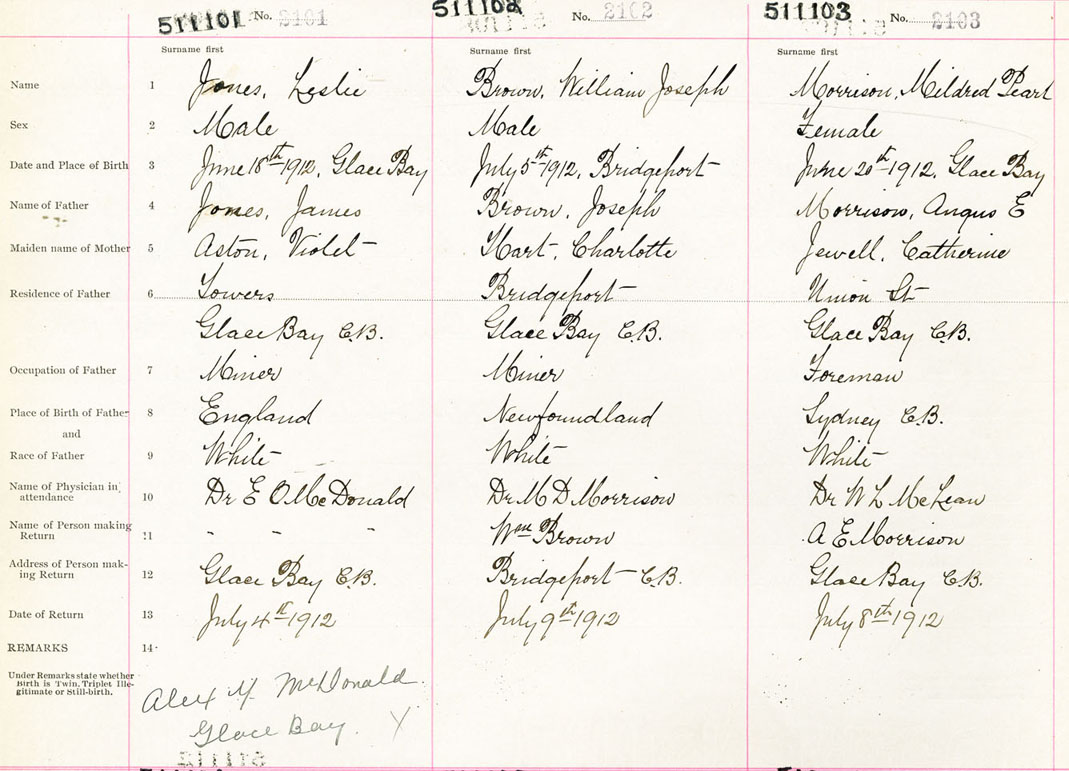 511101 No. 2101 511102 No. 2102 511103 No. 2103
Surname first Surname first Surname first
Name 1 Jones, Leslie Brown, William Joseph Morrison, Mildred Pearl
Sex 2 Male Male Female
Date and Place of Birth 3 June 18th 1912, Glace Bay July 5th 1912, Bridgeport June 20th 1912, Glace Bay
Name of Father 4 Jones, James Brown, Joseph Morrison, Angus E
Maiden name of Mother 5 Aston, Violet Hart, Charlotte Jewell, Catherine
Residence of Father 6 Towers Bridgeport Union St
Glace Bay C.B. Glace Bay C.B. Glace Bay C.B.
Occupation of Father 7 Miner Miner Foreman
Place of Birth of Father 8 England Newfoundland Sydney C.B.
and
Race of Father 9 White White White
Name of Physician in attendance 10 Dr E O McDonald Dr M D Morrison Dr W L McLean
Name of Person making Return 11 - - - Wm Brown A E Morrison
Address of Person mak-ing Return 12 Glace Bay C.B. Bridgeport C.B. Glace Bay C.B.
Date of Return 13 July 4th 1912 July 9th 1912 July 8th 1912
REMARKS 14
Under Remarks state whether
Birth is Twin, Triplet Ille-
gitimate or Still-birth.
Alex McDonald
Glace Bay. X